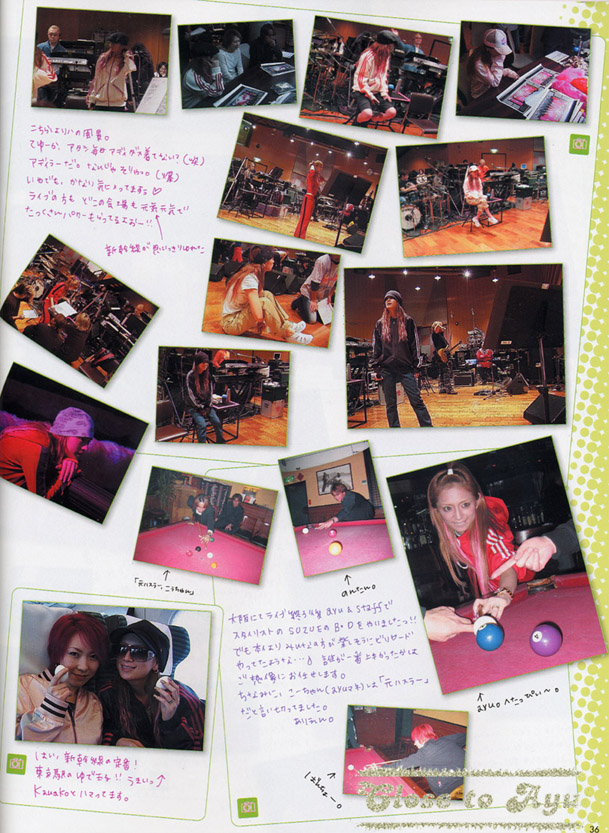 こちらよりリハの風景。
てゆーか、アタシ毎日アディダス着てない?(涙)
アディラーだ。なんじゃそりゃ。(爆)
いやでも、かなり気に入ってますよ♡
ライブの方も どこの会場も元気元気で
たっくさんパワーもらってるよぉー!!
新幹線が
「元ハスラー、こうちゃん」
anたん。
大阪にてライブ終了後 ayu&staffで
スタイリストのSUZUEのB・Dをやりましたっ!!
でも本人より みんなの方が楽しそうにビリヤード
やってたような…♪ 誰が一番上手かったかは
ご想像にお任せします。
ちなみに、こーちゃん(ayuマネ)は「元ハスラー」
だと言い切ってました。
ありえん。
ayu。へたっぴぃ〜。
はい!新幹線の定番!
東京駅のゆで玉子!!うまいっ
Kawakoとハマッてます。
Close to Ayu
36